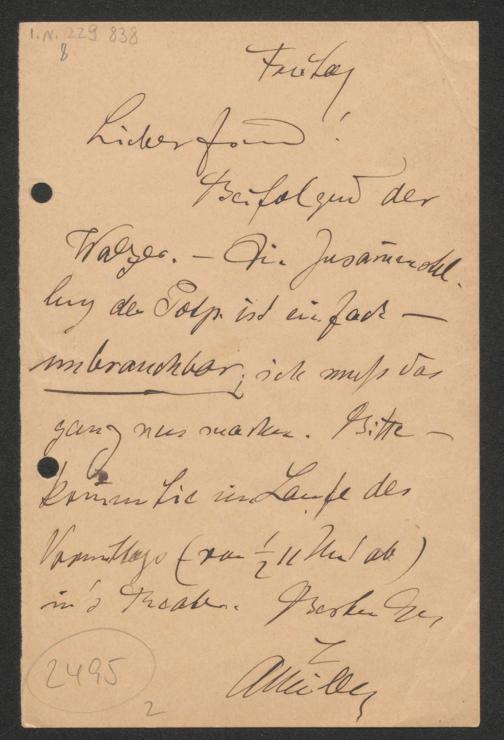 I.N. 229 838
8
Freitag
Lieber Freund!
Beifolgend der
Walzer. – Die Zusam̅enstel-
lung des Potp. ist einfach –
unbrauchbar; ich muß das
ganz neu machen. Bitte –
kom̅en Sie im Laufe des
Vormittags (von ½ 11 Uhr ab)
in's Theater. Besten Gruß
AMüller
2495
2